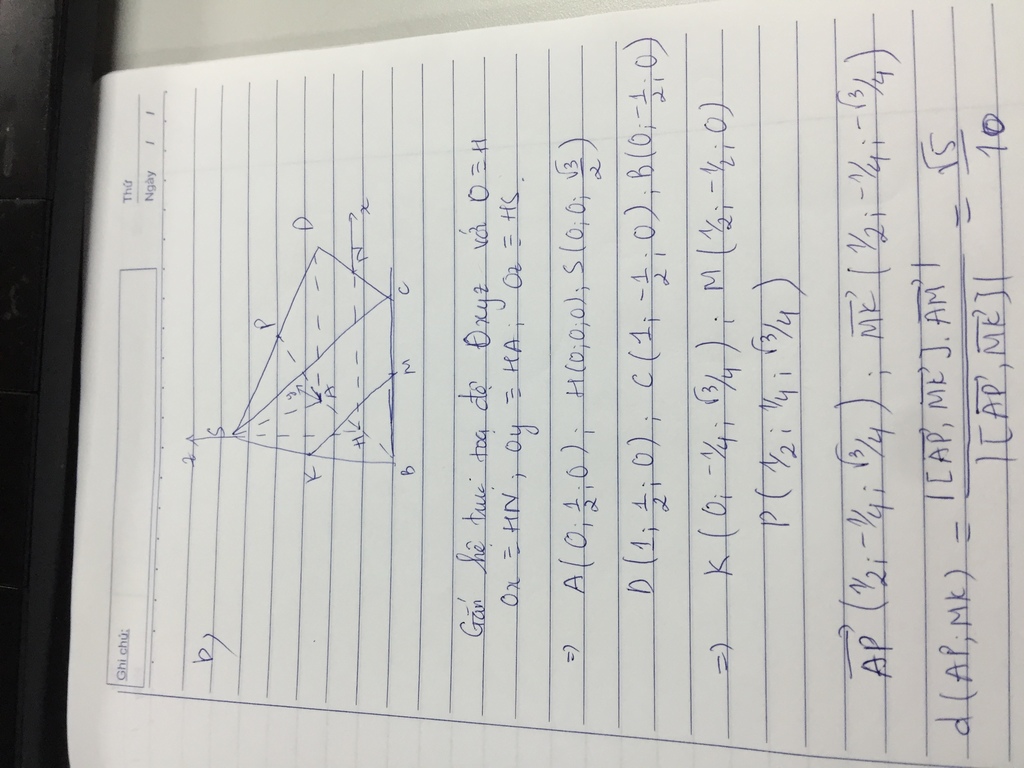 Ghi chú:
Thứ
Ngày / /
b)
z
S
P
D
K
y
A
H
N
x
B
M
C
Gắn hệ trục toạ độ Oxyz với O ≡ H
Ox ≡ HN; Oy ≡ HA; Oz ≡ HS.
=> A(0; 1/2; 0); H(0;0;0); S(0; 0; √3/2)
D(1; 1/2; 0); C(1; -1/2; 0); B(0; -1/2; 0)
=> K(0; -1/4; √3/4); M(1/2; -1/2; 0)
P(1/2; 1/4; √3/4)
AP→(1/2; -1/4; √3/4); MK→(1/2; -1/4; -√3/4)
d(AP; MK) = |[AP→; MK→].AM→| / |[AP→; MK→]| = √5/10